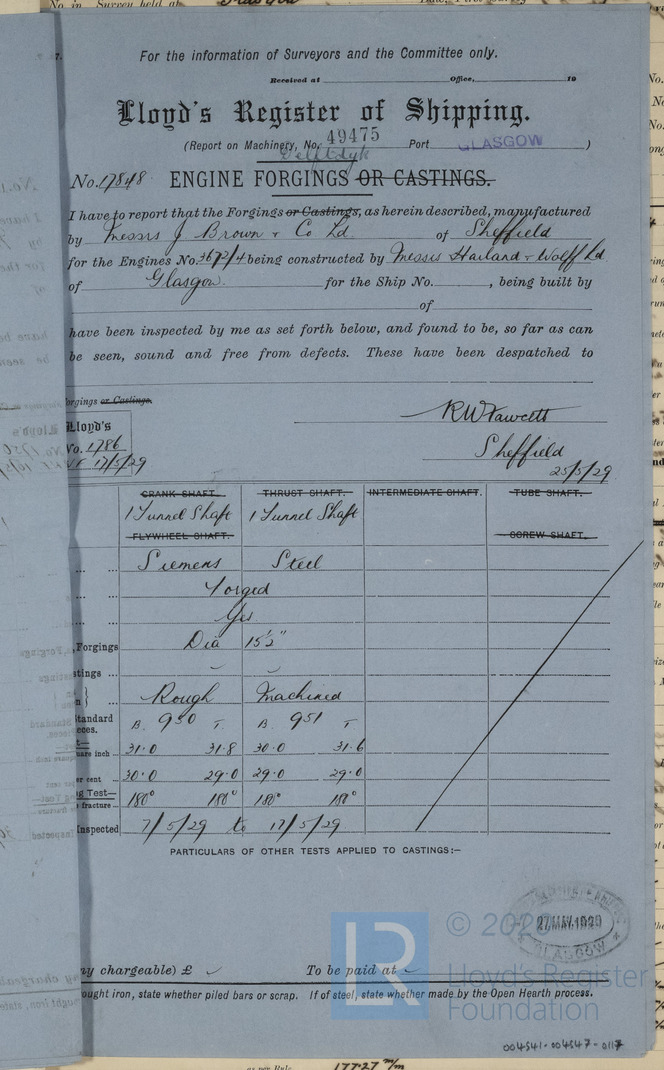 For the information of Surveyors and the Committee only.
Received at Office, 19
Lloyd's Register of Shipping.
(Report on Machinery, No. 49475 Port GLASGOW )
Delftdyk
No. 17848 ENGINE FORGINGS OR CASTINGS.
I have to report that the Forgings or Castings, as herein described, manufactured
by Messrs J. Brown & Co Ld of Sheffield
for the Engines No. 3672/4 being constructed by Messrs Harland & Wolff Ld
of Glasgow. for the Ship No. , being built by
of
have been inspected by me as set forth below, and found to be, so far as can
be seen, sound and free from defects. These have been despatched to
orgings or Castings.
RW Fawcett
Lloyd's
No. 1786
17/5/29
Sheffield
25/5/29
CRANK SHAFT. THRUST SHAFT. INTERMEDIATE SHAFT. TUBE SHAFT.
1 Tunnel Shaft 1 Tunnel Shaft
FLYWHEEL SHAFT. SCREW SHAFT.
... ... Siemens Steel
... ... Forged
... ... Yes
Forgings Dia 15½"
stings ...
} ... Rough Machined
Standard
eces. B. 950 T. B. 951 T
uare inch ... 31.0 31.8 30.0 31.6
er cent ... 30.0 29.0 29.0 29.0
g Test—
fracture ... 180° 180° 180° 180°
Inspected 7/5/29 to 17/5/29
PARTICULARS OF OTHER TESTS APPLIED TO CASTINGS:—
27 MAY 1929
GLASGOW
© 2020
LR
Lloyd's Register
Foundation
ny chargeable) £ To be paid at
ought iron, state whether piled bars or scrap. If of steel, state whether made by the Open Hearth process.
004541-004547-0117
as per Rule 177.27 m/m